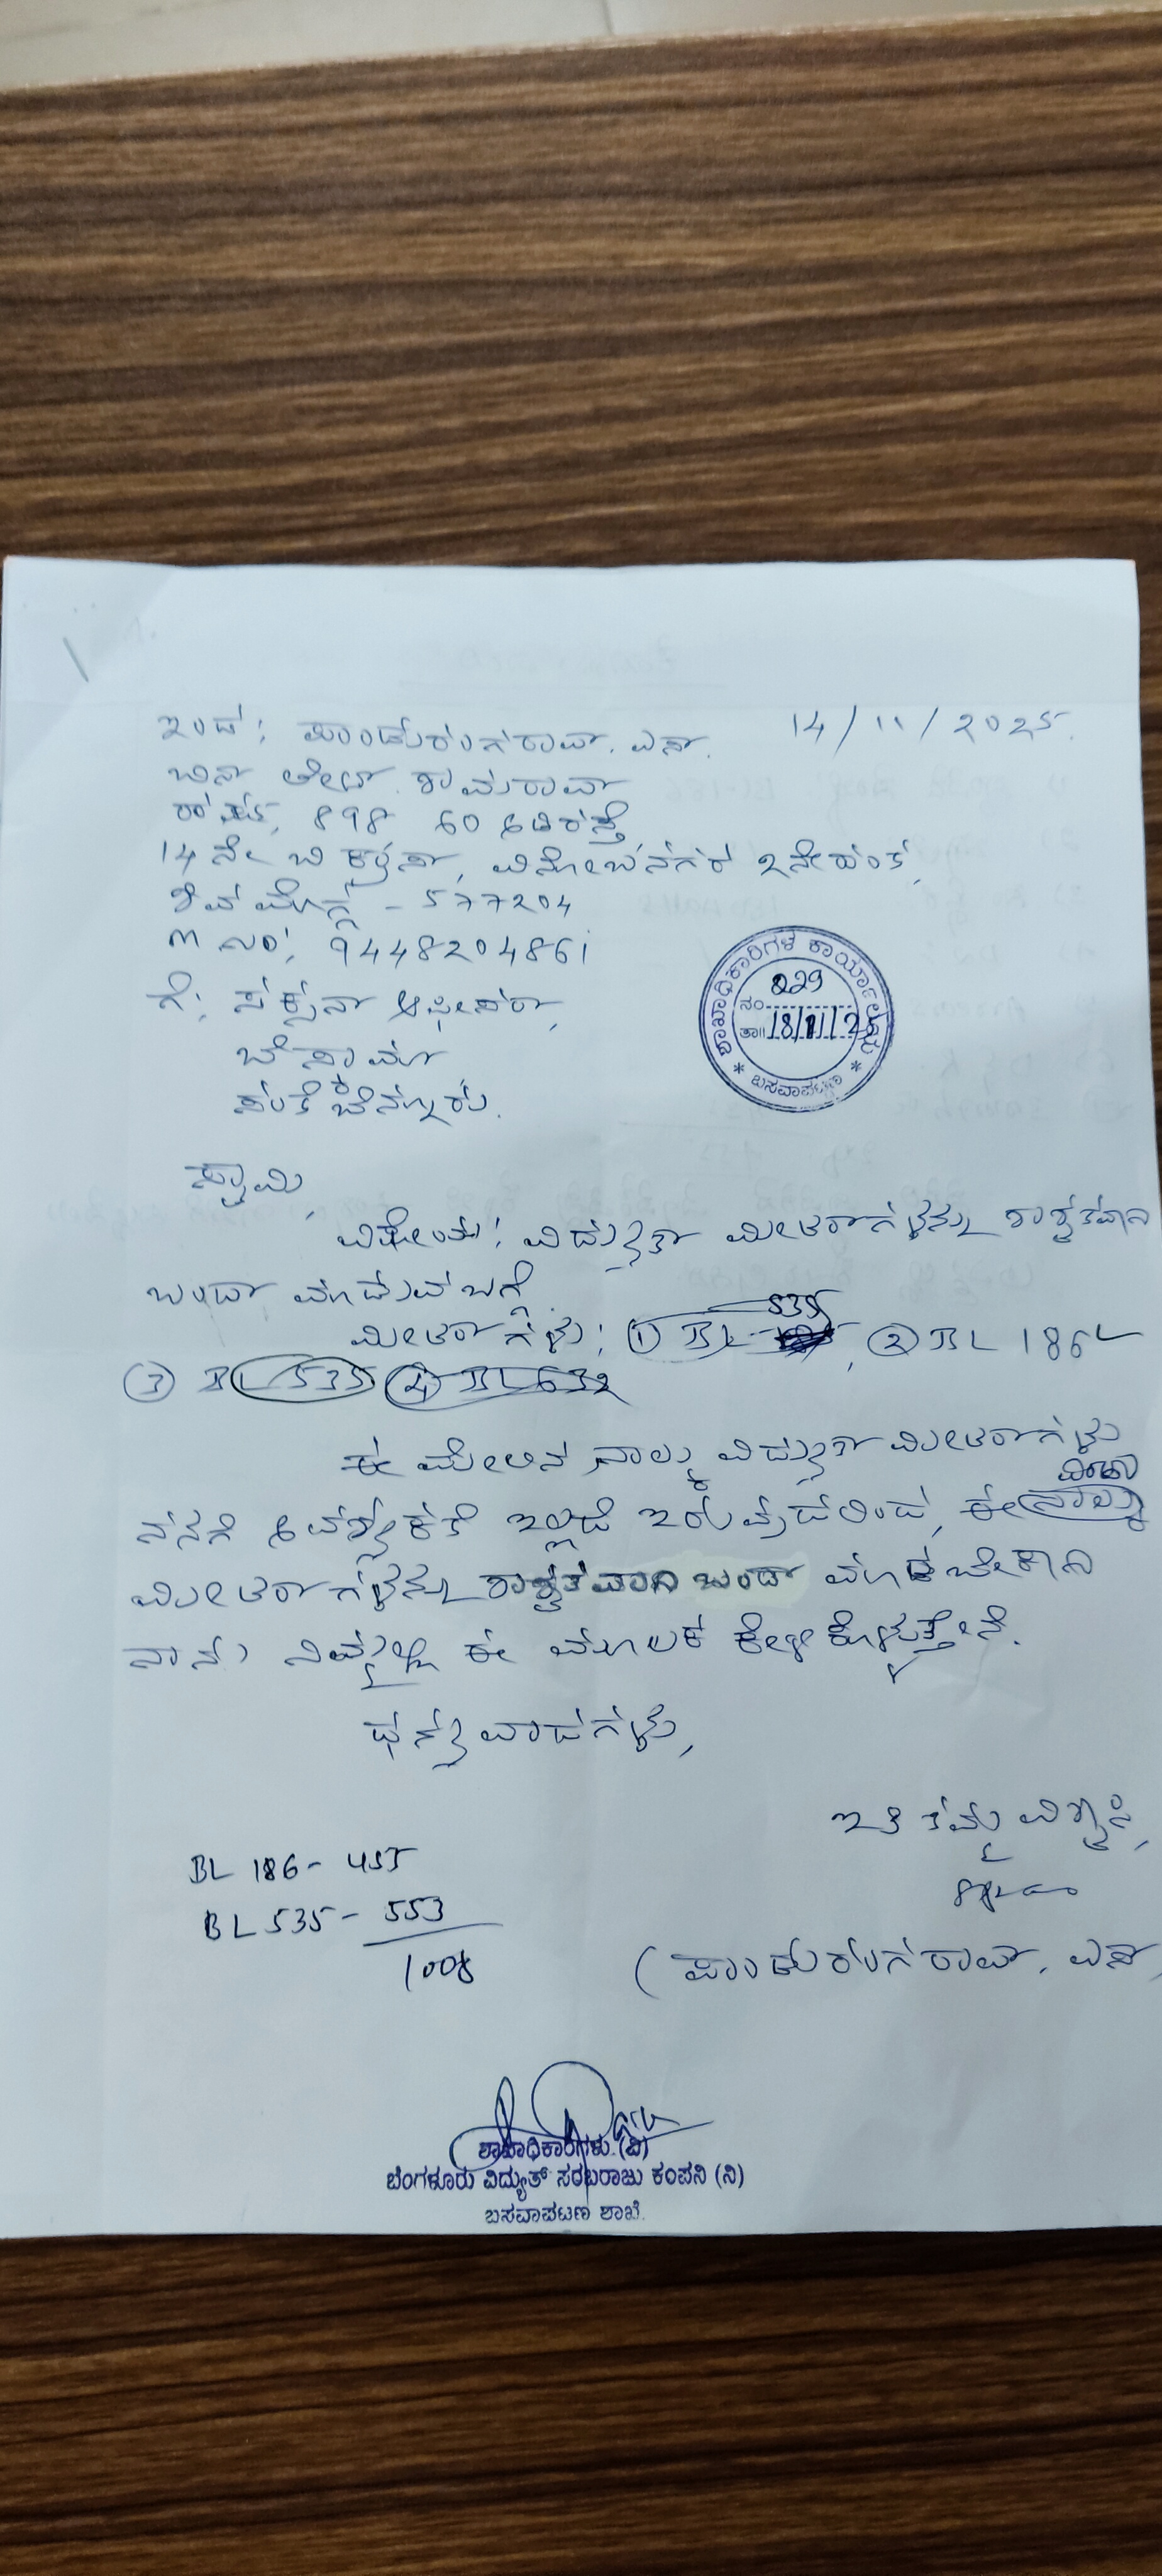 ಇಂದ: ಪಾಂಡುರಂಗರಾವ್. ಎಸ್. 14/11/2025.
ಬಿನ್ ಲೇಟ್. ಶಾಮರಾವ್
898 60 ಅಡಿ ರಸ್ತೆ
14 ನೇ ಬಿ ಕ್ರಾಸ್, ವಿನೋಬನಗರ 2ನೇ ಹಂತ,
ಶಿವಮೊಗ್ಗ - 577204
ಮೊ ನಂ: 9448204861
ಗೆ: ಸೆಕ್ಷನ್ ಆಫೀಸರ್,
ಬೆಸ್ಕಾಂ
ಸಂತೆಬೆನ್ನೂರು.
ಶಾಖಾಧಿಕಾರಿಗಳ ಕಾರ್ಯಾಲಯ
ನಂ 229
ತಾ॥ 18/11/2
* ಬಸವಾಪಟ್ಟಣ *
ಸ್ವಾಮಿ,
ವಿಷಯ: ವಿದ್ಯುತ್ ಮೀಟರ್‌ಗಳನ್ನು ಶಾಶ್ವತವಾಗಿ
ಬಂದ್ ಮಾಡುವ ಬಗ್ಗೆ.
535
ಮೀಟರ್ ಗಳು: ① BL , ② BL 186
③ BL 535 ④ BL 632
ಈ ಮೇಲಿನ ನಾಲ್ಕು ವಿದ್ಯುತ್ ಮೀಟರ್‌ಗಳು
ನನಗೆ ಅವಶ್ಯಕತೆ ಇಲ್ಲದೆ ಇರುವುದರಿಂದ, ಈ ನಾಲ್ಕು
ಮೀಟರ್ ಗಳನ್ನು ಶಾಶ್ವತವಾಗಿ ಬಂದ್ ಮಾಡಬೇಕಾಗಿ
ನಾನು ನಿಮ್ಮಲ್ಲಿ ಈ ಮೂಲಕ ಕೇಳಿಕೊಳ್ಳುತ್ತೇನೆ.
ಧನ್ಯವಾದಗಳು,
ಇತಿ ತಮ್ಮ ವಿಶ್ವಾಸಿ,
BL 186 - 455
BL 535 - 553
1008
(ಪಾಂಡುರಂಗರಾವ್. ಎಸ್.
ಶಾಖಾಧಿಕಾರಿಗಳು (ವಿ)
ಬೆಂಗಳೂರು ವಿದ್ಯುತ್ ಸರಬರಾಜು ಕಂಪನಿ (ನಿ)
ಬಸವಾಪಟಣ ಶಾಖೆ.